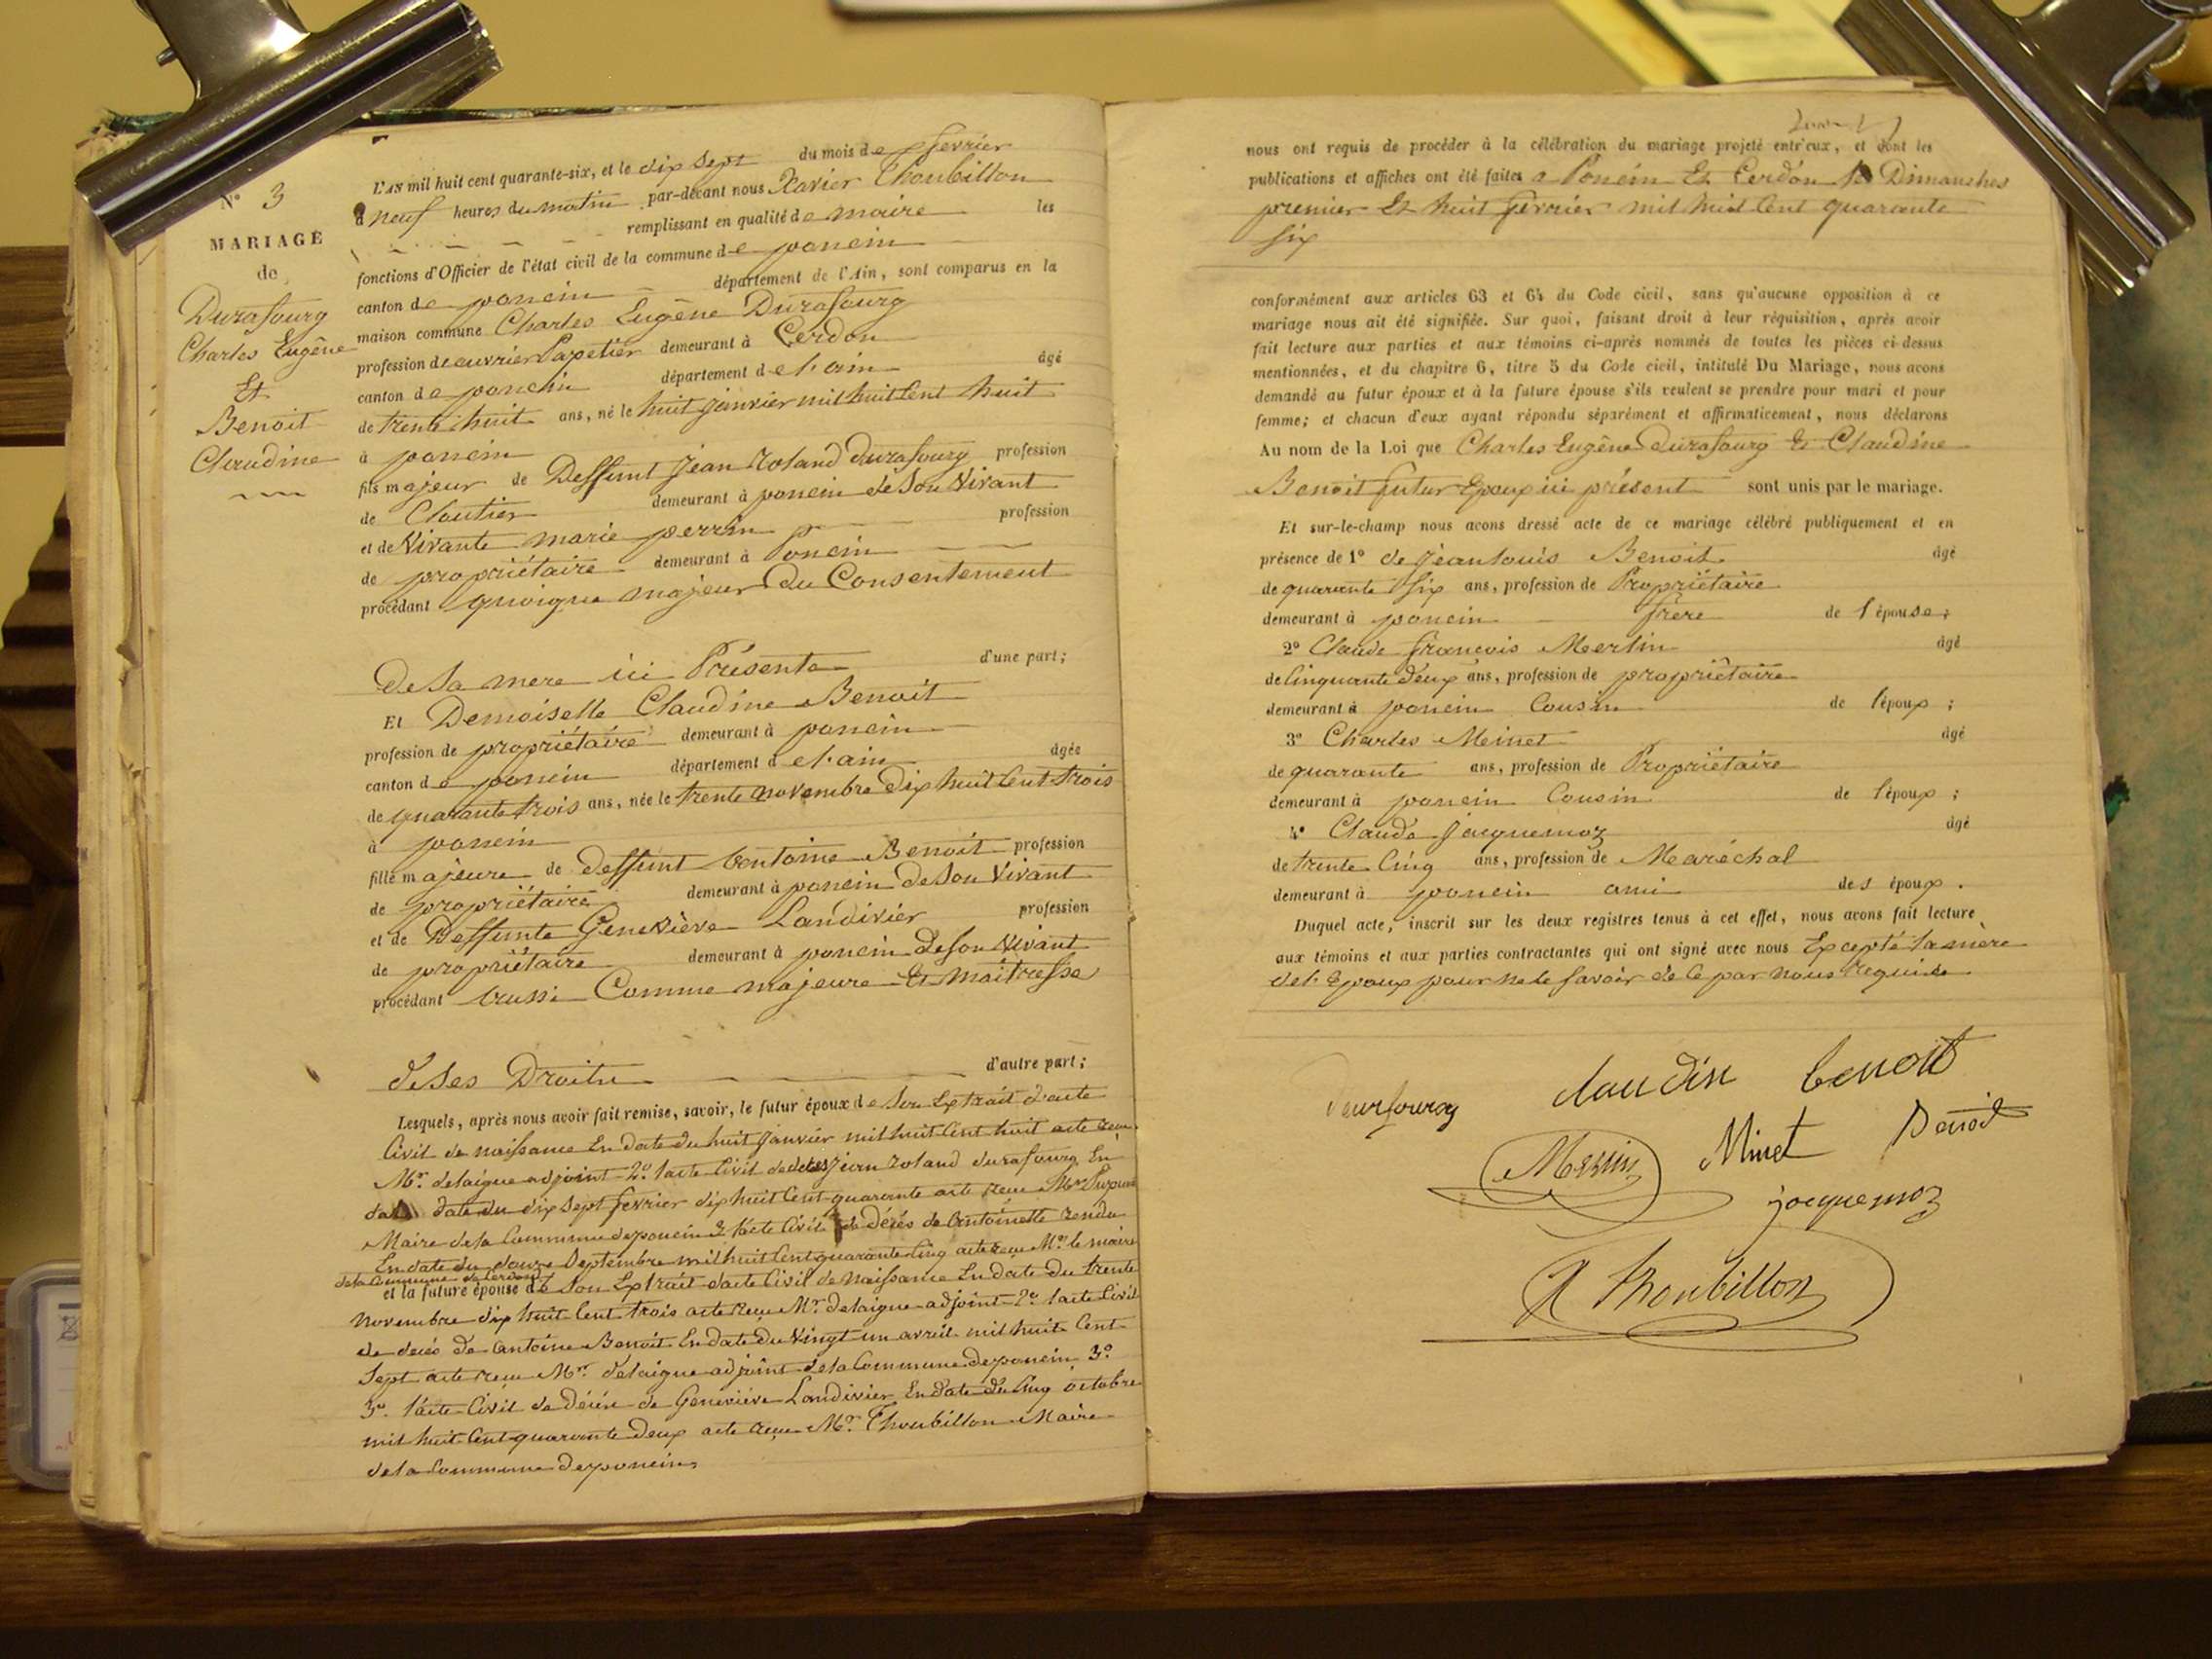 N° 3
MARIAGE
de
Durafourg
Charles Eugène
Et
Benoit
Claudine
L'AN mil huit cent quarante-six, et le dix sept du mois de fevrier
à neuf heures du matin par-devant nous Xavier Thoubillon
remplissant en qualité de maire les
fonctions d'Officier de l'état civil de la commune de poncin
canton de poncin département de l'Ain, sont comparus en la
maison commune Charles Eugène Durafourg
profession de ouvrier Papetier demeurant à Cerdon
canton de poncin département de l'ain âgé
de trente huit ans, né le huit janvier mil huit Cent huit
à poncin
fils majeur de Deffunt Jean Roland durafourg profession
de Cloutier demeurant à poncin de Son Vivant
et de Vivante marie perrin profession
de propriétaire demeurant à Poncin
procédant quoique majeur Du Consentement
De Sa mere ici Présente d'une part;
Et Demoiselle Claudine Benoit
profession de propriétaire demeurant à poncin
canton de poncin département de l'ain âgée
de quarante trois ans, née le trente novembre Dix huit Cent trois
à poncin
fille majeure de deffunt Antoine Benoit profession
de propriétaire demeurant à poncin De Son Vivant
et de Deffunte Geneviève Landivier profession
de propriétaire demeurant à poncin De Son Vivant
procédant aussi Comme majeure Et Maitresse
de Ses Droits d'autre part;
Lesquels, après nous avoir fait remise, savoir, le futur époux de Son Extrait d'acte
Civil de naissance En date du huit Janvier mil huit Cent huit acte reçu
Mr. delaigue adjoint 2° l'acte Civil de déces Jean Roland durafourg En
date du dix Sept fevrier dix huit Cent quarante acte reçu Mr
Maire de la Commune de poncin 3 l'acte Civil de Décés de Antoinette rendu
En date du douze Septembre mil huit Cent quarante Cinq acte reçu Mr. le maire
de la Commune de Cerdon
et la future épouse de Son Extrait d'acte Civil de Naissance En date Du trente
Novembre dix huit Cent trois acte reçu Mr. Delaigue adjoint 2° l'acte Civil
de décés de Antoine Benoit En date Du Vingt un avril mil huit Cent
Sept acte reçu Mr. delaigue adjoint de la Commune de poncin 3°
3° l'acte Civil de Décés de Geneviéve Landivier En date du Cinq octobre
mil huit Cent quarante Deux acte reçu Mr. Thoubillon Maire
de la Commune de poncin
nous ont requis de procéder à la célébration du mariage projeté entr'eux, et dont les
publications et affiches ont été faites a Poncin Et Cerdon les Dimanches
premier Et huit fevrier mil huit Cent quarante
Six
conformément aux articles 63 et 64 du Code civil, sans qu'aucune opposition à ce
mariage nous ait été signifiée. Sur quoi, faisant droit à leur réquisition, après avoir
fait lecture aux parties et aux témoins ci-après nommés de toutes les pièces ci-dessus
mentionnées, et du chapitre 6, titre 5 du Code civil, intitulé Du Mariage, nous avons
demandé au futur époux et à la future épouse s'ils veulent se prendre pour mari et pour
femme; et chacun d'eux ayant répondu séparément et affirmativement, nous déclarons
Au nom de la Loi que Charles Eugène Durafourg Et Claudine
Benoit futur Epoux ici présent sont unis par le mariage.
Et sur-le-champ nous avons dressé acte de ce mariage célébré publiquement et en
présence de 1° de Jean Louis Benoit âgé
de quarante Six ans, profession de Propriétaire
demeurant à poncin frère de l'épouse;
2° Claude françois Merlin âgé
de Cinquante deux ans, profession de propriétaire
demeurant à poncin Cousin de l'époux;
3° Charles Meinet âgé
de quarante ans, profession de Propriétaire
demeurant à poncin Cousin de l'époux;
4° Claude Jacquemoz âgé
de trente Cinq ans, profession de Maréchal
demeurant à poncin ami des époux.
Duquel acte, inscrit sur les deux registres tenus à cet effet, nous avons fait lecture
aux témoins et aux parties contractantes qui ont signé avec nous Excepté la mère
de l'Epoux pour ne le Savoir de Ce par nous requise
durafourg
claudine benoit
Merlin Minet Benoit
jacquemoz
X Thoubillon